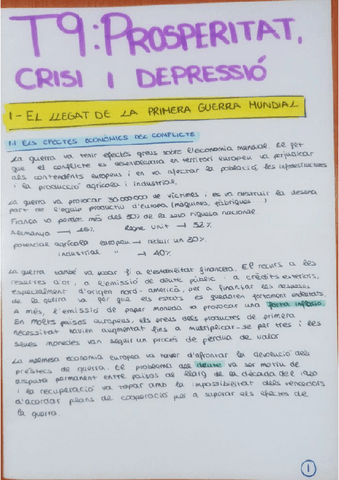 T9: PROSPERITAT,
CRISI I DEPRESSIÓ
1- EL LLEGAT DE LA PRIMERA GUERRA MUNDIAL
1.1 ELS EFECTES ECONÒMICS DEL CONFLICTE
La guerra va tenir efectes greus sobre l'economia mundial. El fet
que el conflicte es desenvolupés en territori europeu va perjudicar
als contendents europeus i en va afectar la població, les infraestructures
i la producció agrícola i industrial.
La guerra va provocar 30.000.000 de víctimes i es va destruir la desena
part de l'equip productiu d'Europa (màquines, fàbriques
França va perdre més del 30% de la seva riquesa nacional
Alemanya → Regne Unit → 32%
potencial agrícola europeu → reduir un 30%
industrial " → 40%
La guerra també va posar fi a l'estabilitat financera. El recurs a les
reserves d'or, a l'emissió de deute públic i a crèdits exteriors,
especialment d'origen nord-americà, per a finançar les despeses
de la guerra va fer que els estats es quedaren fortament endeutats
A més, l'emissió de paper moneda va provocar una forta inflació.
En molts països europeus, els preus dels productes de primera
necessitat havien augmentat fins a multiplicar-se per tres i les
seues monedes van seguir un procés de pèrdua de valor
La malmesa economia europea va haver d'afrontar la devolució dels
préstecs de guerra. El problema del deute va ser motiu de
disputa permanent entre països al llarg de la dècada del 1920
i la recuperació va topar amb la impossibilitat dels vencedors
d'acordar plans de cooperació per a superar els efectes de
la guerra.
1